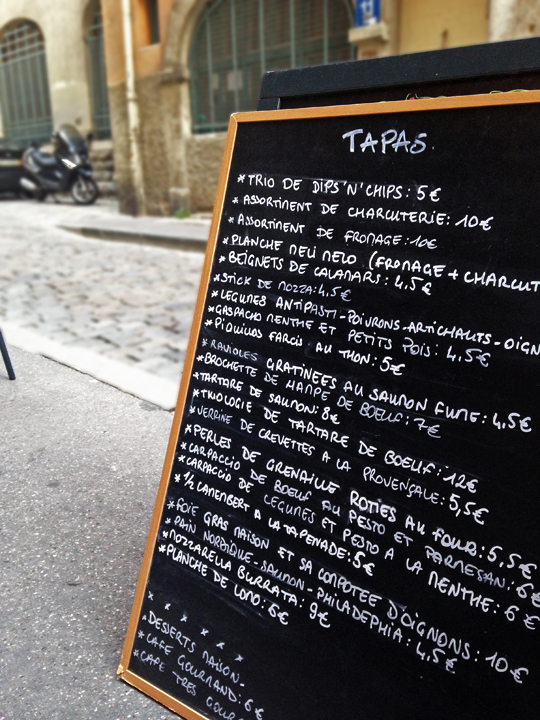 TAPAS.
* TRIO DE DIPS'N'CHIPS: 5€
* ASSORTIMENT DE CHARCUTERIE: 10€
* ASSORTIMENT DE FROMAGE: 10€
* PLANCHE MELI MELO (FROMAGE + CHARCUT
* BEIGNETS DE CALAMARS: 4,5€
* STICK DE MOZZA: 4,5€
* LEGUMES ANTIPASTI - POIVRONS - ARTICHAUTS - OIGN
* GASPACHO MENTHE ET PETITS POIS: 4,5€
* PIQUILLOS FARCIS AU THON: 5€
* RAVIOLES GRATINEES AU SAUMON FUME: 4,5€
* BROCHETTE DE HAMPE DE BOEUF: 7€
* TARTARE DE SAUMON: 8€
* TRILOGIE DE TARTARE DE BOEUF: 12€
* VERRINE DE CREVETTES A LA PROVENÇALE: 5,5€
* PERLES DE GRENAILLE ROTIES AU FOUR: 5,5€
* CARPACCIO DE BOEUF AU PESTO ET PARMESAN: 6€
* CARPACCIO DE LEGUMES ET PESTO A LA MENTHE: 6€
* 1/2 CAMENBERT A LA TAPENADE: 5€
* FOIE GRAS MAISON ET SA COMPOTEE D'OIGNONS: 10€
* PAIN NORDIQUE - SAUMON - PHILADELPHIA: 4,5€
* MOZZARELLA BURRATA: 9€
* PLANCHE DE LOMO: 6€
* * * * * *
* DESSERTS MAISON -
* CAFE GOURMAND: 6€
* CAFE TRES GOUR